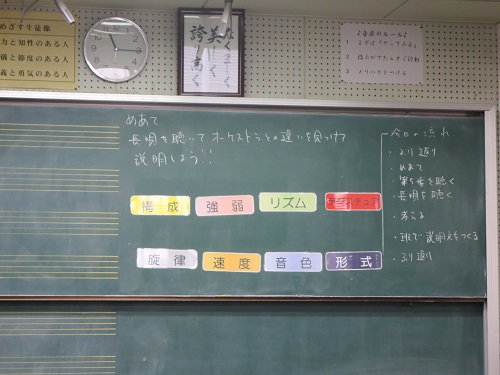 めざす生徒像
力と知性のある人
儀と節度のある人
義と勇気のある人
美しく
誇り高く
1
2
3
めあて
長唄を聴いてオーケストラとの違いを見つけて
説明しよう!!
構成
強弱
リズム
旋律
速度
音色
形式
今日の流れ
・ふり返り
・めあて
第5番を聴く
・長唄を聴く
・考える
・班で説明文をつくる
・ふり返り